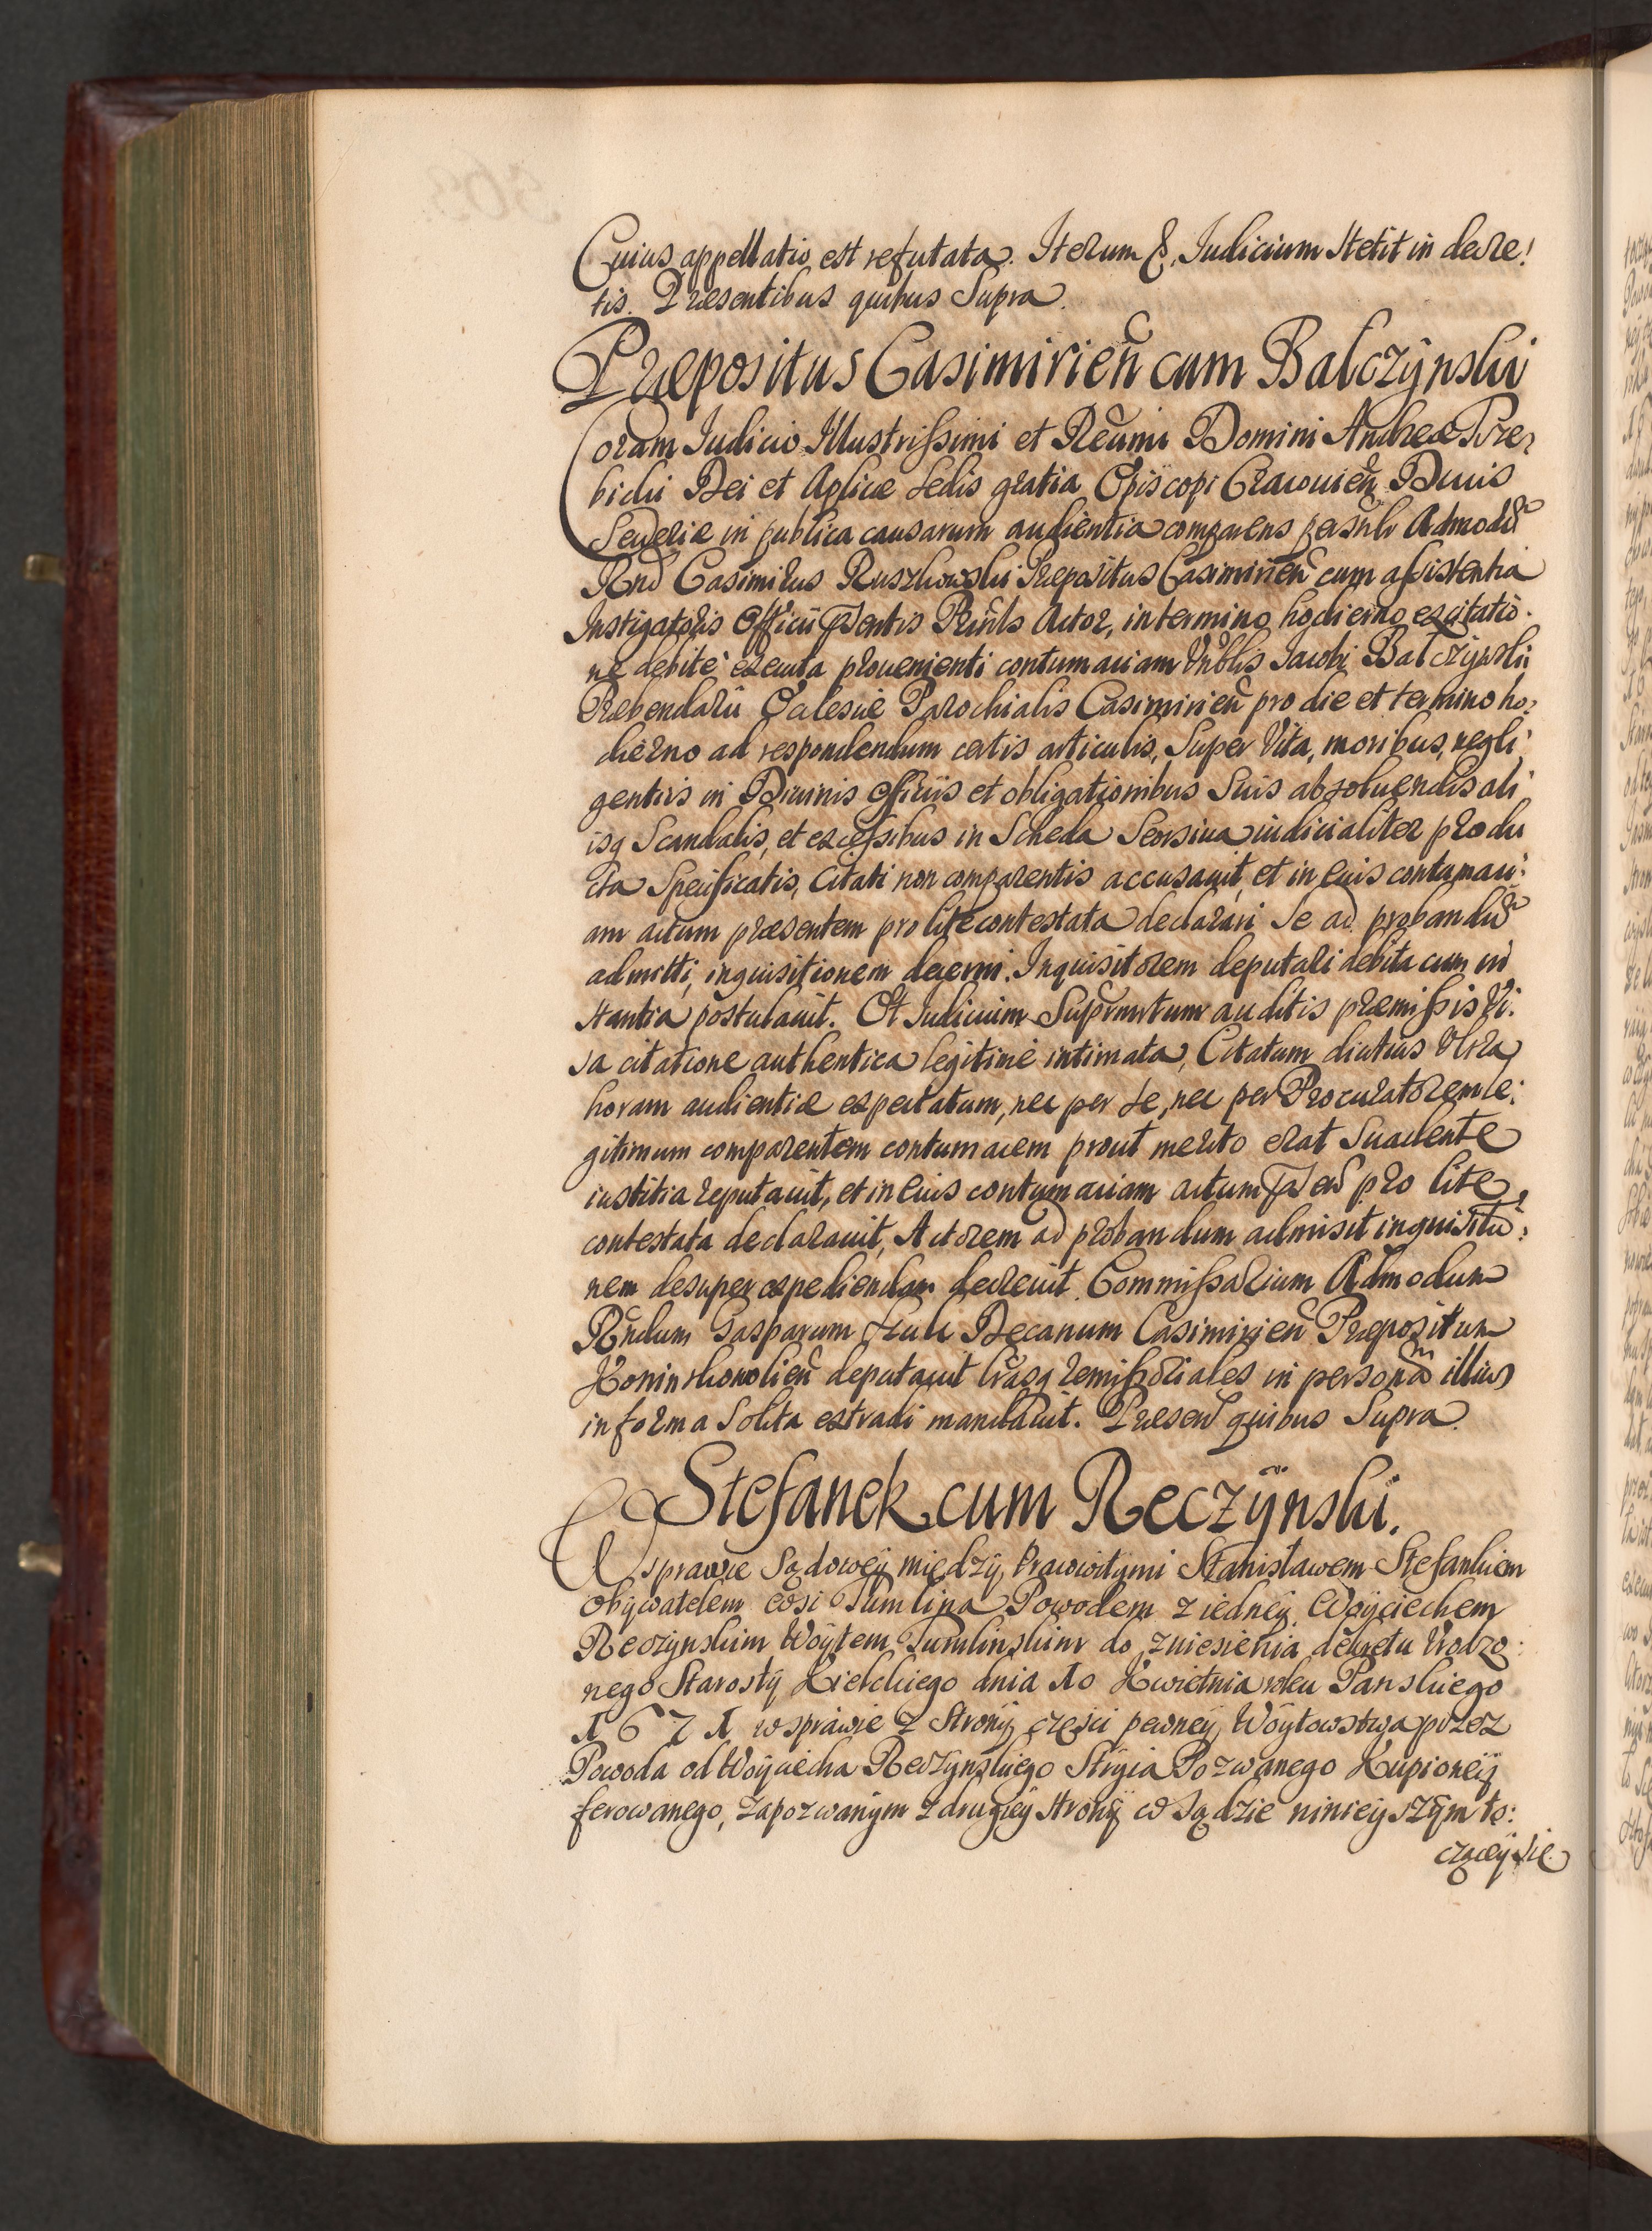 Cuius appellatio est refutata. Iterum &, Iudicium stetit in decre:
tis. Præsentibus quibus Supra.
Præpositus Casimirien̄ cum Balczÿnski
Coram Iudicio Illustrissimi et Reu͠mi Domini Andreæ Trze:
bicki Dei et Aplicæ Sedis gratia Episcopi Cracouien̄ Ducis
Seueriæ in publica causarum audientia comparens personlr Admodũ
Rnd Casimirus Ruszkowski Præpositus Casimirien̄ cum assistentia
Instigatoris Officii Pñtis Prinls Actor, in termino hodierno ex citatio:
ne debite executa prouenienti contumaciam Vnblis Iacobi Balczÿnski
Præbendarii Ecclesiæ Parochialis Casimirien̄ pro die et termino ho:
dierno ad respondendum certis articulis, Super Vita, moribus, negli:
gentiis in Diuinis Officiis et obligationibus Suis absoluendis ali:
isq Scandalis, et excessibus in Scheda Seorsiua iudicialiter produ
cta Specificatis, Citati non comparentis accusauit, et in eius contumaci:
am actum præsentem pro lite contestata declarari Se ad probandũ
admitti, inquisitionem decerni. Inquisitorem deputari debita cum in
stantia postulauit. Et Iudicium Suprnrtum auditis præmissis Vi:
sa citatione authentica legitime intimata, Citatum diutius Vltra
horam audientiæ expectatum, nec per se, nec per Procuratorem le:
gitimum comparentem contumacem prout merito erat Suadente
iustitia reputauit, et in eius contumaciam actum Pñtem pro lite
contestata declarauit, Actorem ad probandum admisit inquisitio:
nem desuper expediendam decreuit. Commissarium Admodum
Rñdum Gasparum Decanum Casimirien̄ Præpositum
deputauit lrasq remissoriales in personam illius
in forma Solita extradi mandauit. Præsen̄ quibus Supra.
Stefanek cum Reczÿnski.
W sprawie Sądoweÿ międzÿ Prawowitÿmi Stanisławem Stefankiem
Obÿwatelem wsi Tumlina Powodem z iedneÿ Woÿciechem
Reczÿnskim Woÿtem Tumlinskim do zniesienia dekretu Vrodzo:
nego Starostÿ Kielckiego dnia 10 Kwietnia roku Panskiego
1671 w sprawie z Stronÿ częsci pewneÿ Woÿtowstwa przez
Powoda od Woÿciecha Reczÿnskiego Strÿia Pozwanego Kupioneÿ
ferowanego, zapozwanÿm z drugieÿ stronÿ w Sądzie ninieÿszÿm to:
cząceÿ się